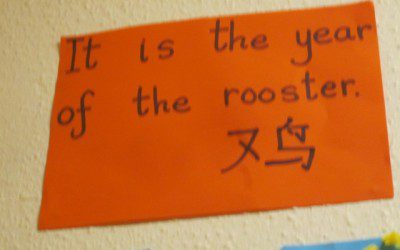 It is the year
of the rooster.
鸡